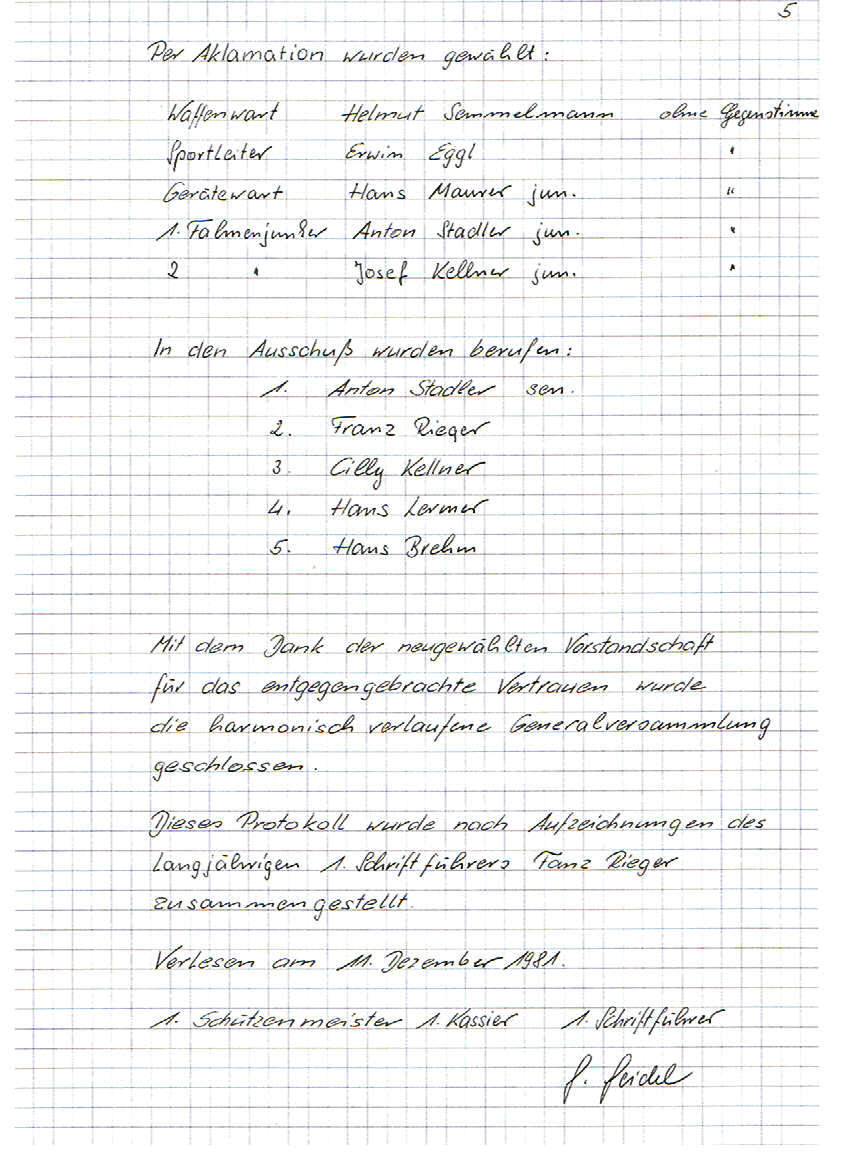 5
Per Aklamation wurden gewählt:
Waffenwart Helmut Semmelmann ohne Gegenstimme
Sportleiter Erwin Eggl "
Gerätewart Hans Maurer jun. "
1. Fahnenjunker Anton Stadler jun. "
2 " Josef Kellner jun. "
In den Ausschuß wurden berufen:
1. Anton Stadler sen.
2. Franz Rieger
3. Cilly Kellner
4. Hans Lermer
5. Hans Brehm
Mit dem Dank der neugewählten Vorstandschaft
für das entgegengebrachte Vertrauen wurde
die harmonisch verlaufene Generalversammlung
geschlossen.
Dieses Protokoll wurde nach Aufzeichnungen des
langjährigen 1. Schriftführers Fanz Rieger
zusammengestellt.
Verlesen am 11. Dezember 1981.
1. Schützenmeister 1. Kassier 1. Schriftführer